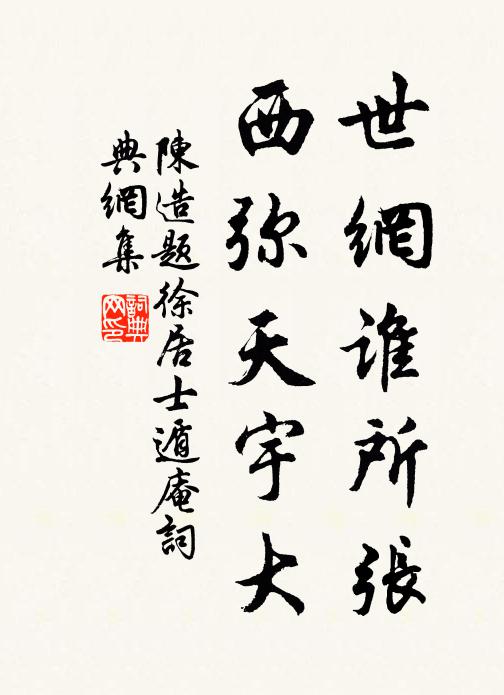 世網誰所張
西弥天宇大
陳造題徐居士遁庵詞
典網集
詞典网印